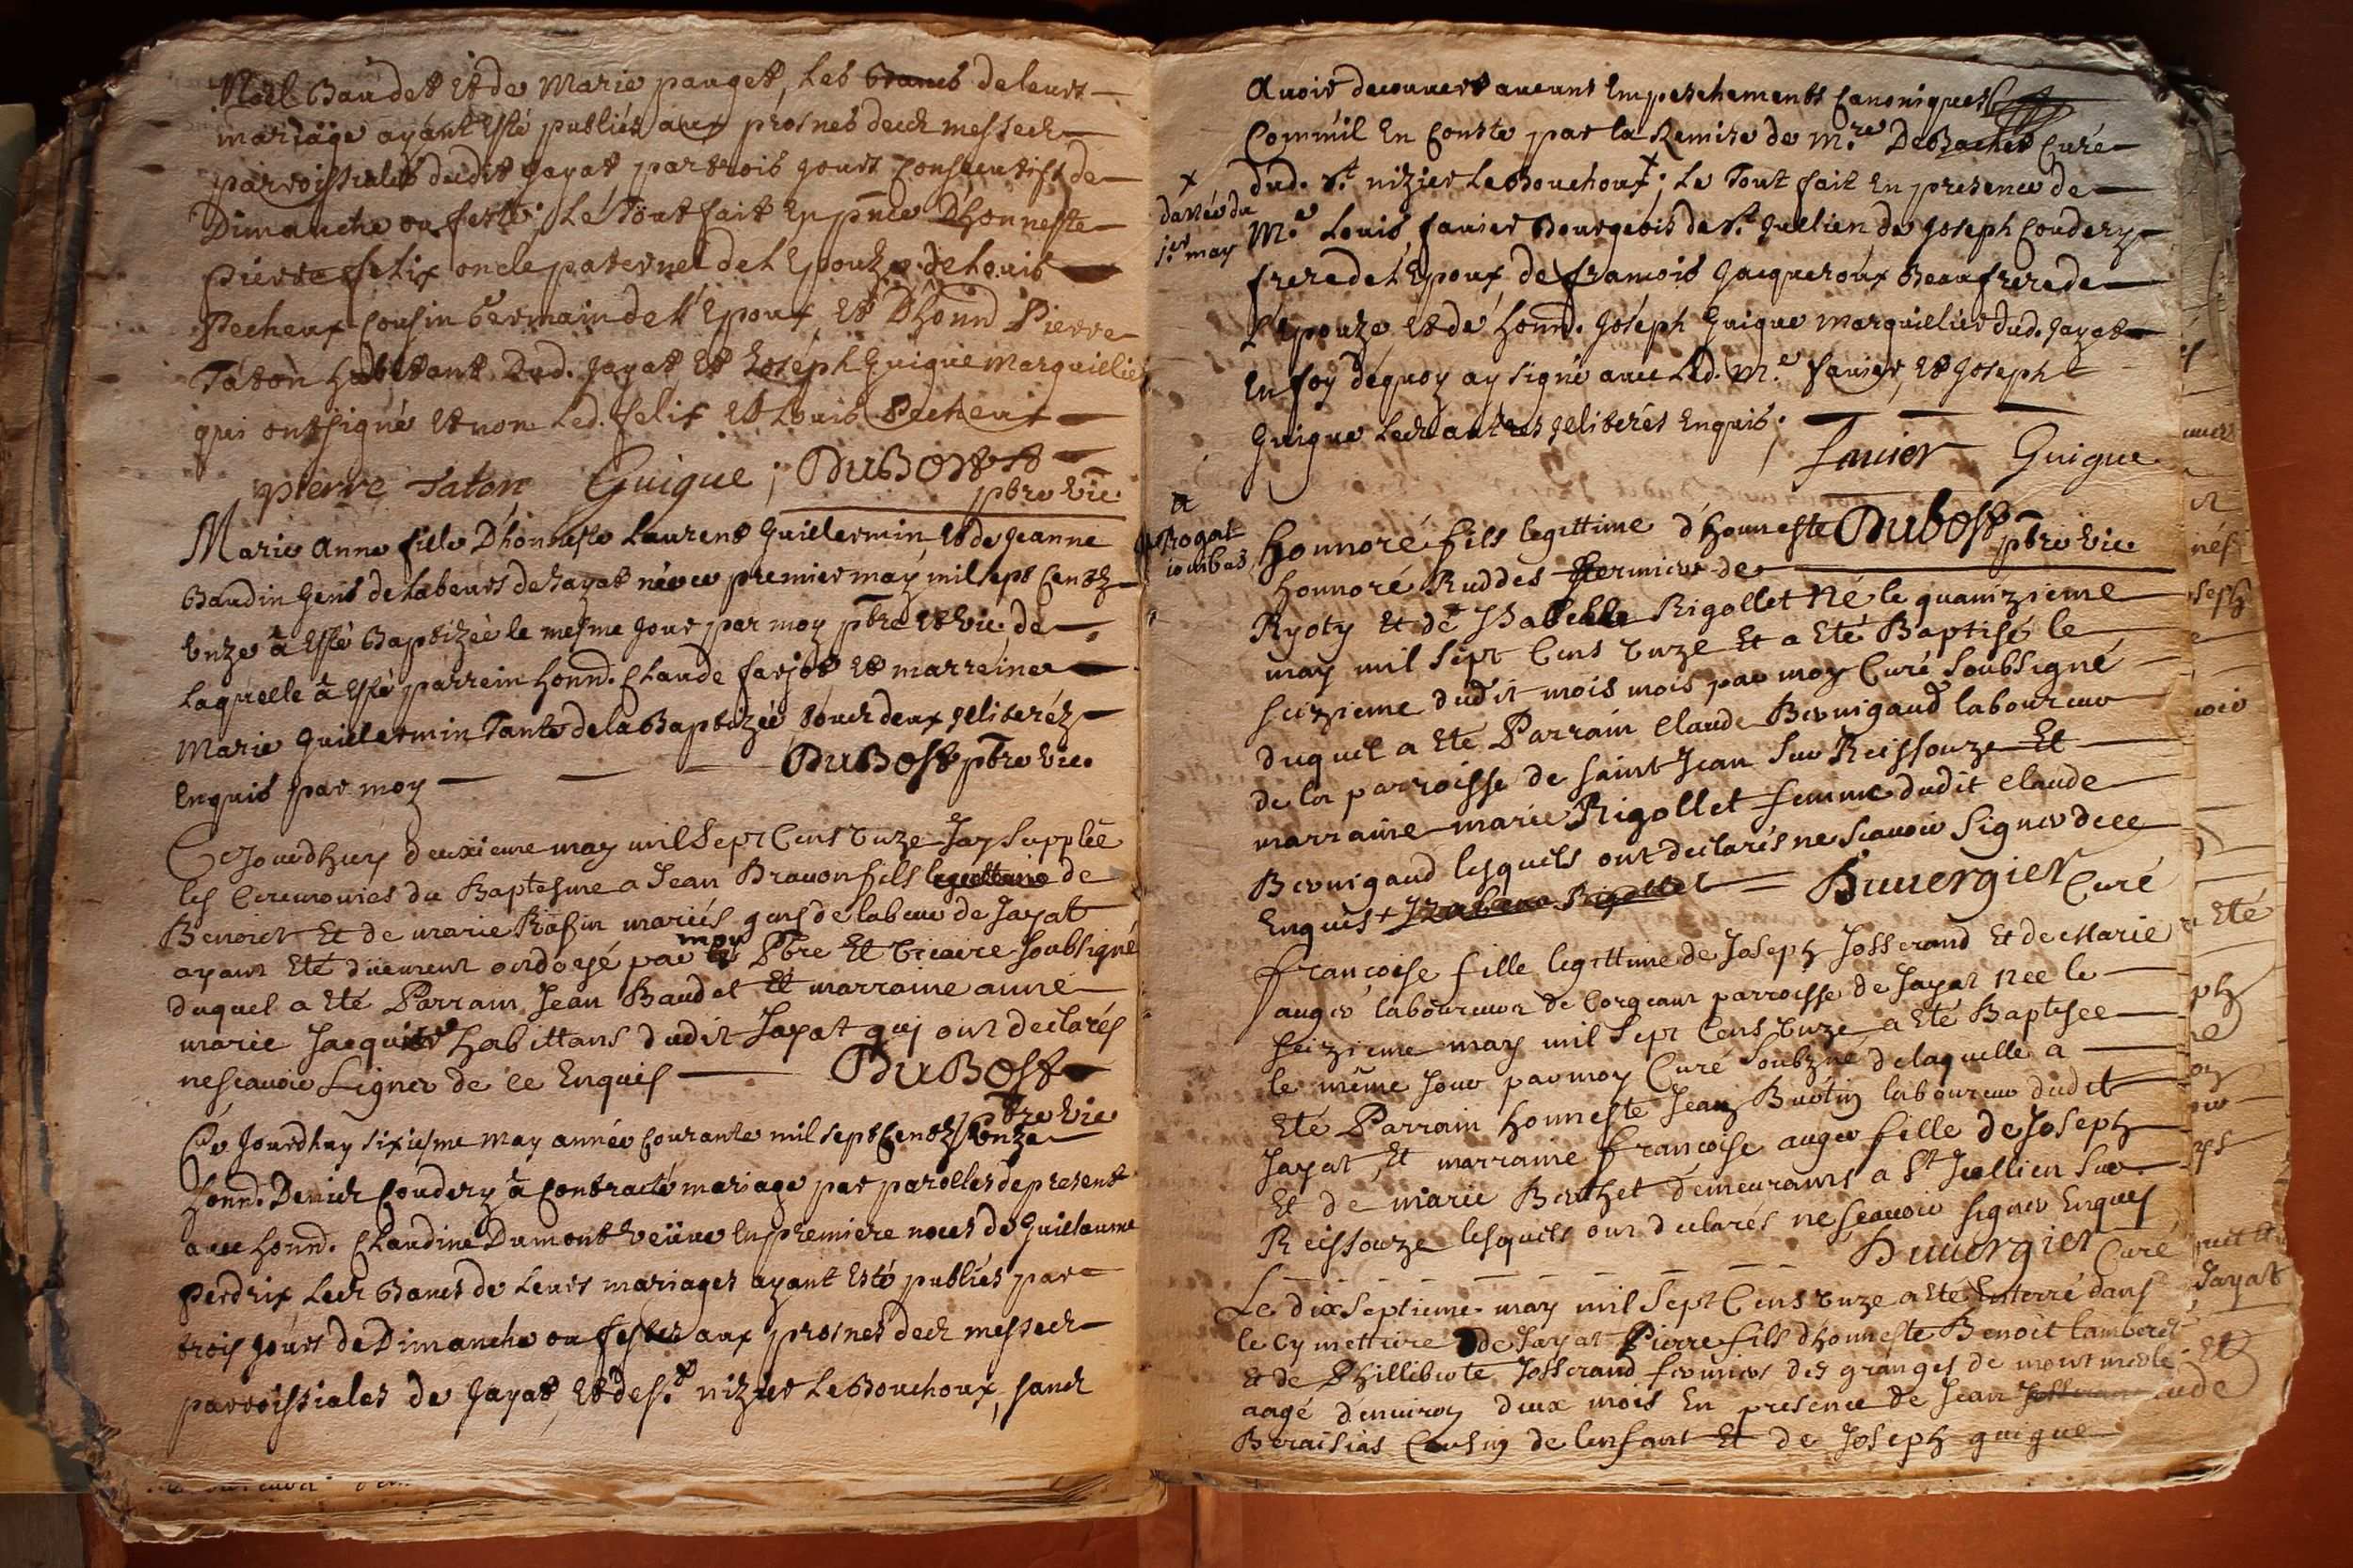 Noël Baudet Et de Marie pauget, Les Bancs de leurs
mariage ayant Esté publiés aux prosnes dech messech
parroissiales dudit Jayat par trois Jours Consecutifs de
Dimanche ou feste; Le Tout fait En pnce Dhonneste
pierre felix oncle paternel de L'Epouze, de Louis
Pecheux Cousin Germain de L'Epoux, Et D'honn Pierre
Taton Habitant Dud. Jayat Et Joseph Guigue Marguillier
qui ont signé Et non Led. felix Et Louis Pecheux
pierre Taton Guigue; DuBost
pbre Vic.
Marie Anne fille D'honneste Laurent Guillermin, Et de Jeanne
Baudin Gens de Labeurs de Jayat née ce premier may mil sept Centz
Unze à Esté Baptizée le mesme Jour par moy pbre Et Vic. de
Laquelle à Esté parrein honn. Claude farjot Et marreine
Marie Guillermin Tante de la Baptizée, touch deux Jllitéréz
Enquis par moy DuBost pbre Vic.
Ce Jourdhuy deuxieme may mil Sept Cens Unze Jay Supplée
les Ceremonies du Baptesme a Jean Brauon fils legittime de
Benoict Et de marie Rasin mariés gens de labeur de Jayat
moy
ayant Eté duement ondoyé par Pbre Et Vicaire Soubsigné
duquel a Eté Parrain Jean Baudet Et marraine anne
marie habittans dudit Jayat qui ont declarés
ne scauoir Signer de ce Enquis DuBost
pbre Vic
Ce Jourdhuy sixiesme may année Courante mil sept Centz Unze
honn. Denich Coudery à Contracté mariage par parolles de present
auec honn. Claudine Dumont Veüue En premiere noces de Guillaume
Perdrix Lech Bancs de Leurs mariages ayant Esté publiés par
trois Jours de Dimanche ou festes aux prosnes dech messech
parroissiales de Jayat, Et de St. nizier Le Bouchoux, sanch
Auoir decouuert aucuns Empeschements Canoniques
Comm'il En Conste par la Remise de Mre. DeBachet Curé
dud. St. nizier Le Bouchoux; Le Tout fait En presence de
x
dattée du
1er. may
Me. Louis fauier Bourgeois de St. Jullien, de Joseph Coudery
frere de L'Epoux, de francois Jacqueroux Beaufrere de
L'Epouze, Et de honn. Joseph Guigue Marguillier dud. Jayat
En foy déquoy ay signé auec Led. Me. fauier, Et Joseph
Guigue Lech autres Jllitérés Enquis;
fauier Guigue
Rogat
Honnoré fils legittime d'honneste DuBost pbre Vic
honnoré Ruddes de
Ryoty Et de Isabelle Rigollet Né le quainzieme
may mil Sept Cens Unze Et a Eté Baptisé le
seizieme dudit mois mois par moy Curé Soubsigné
duquel a Eté Parrain Claude Bernigaud laboureur
de la parroisse de saint Jean Sur Reissouze Et
marraine marie Rigollet femme dudit Claude
Bernigaud lesquels ont declarés ne Scauoir Signer de ce
Enquis Duuergier Curé
françoise fille legittime de Joseph Josserand Et de Marie
auger laboureur de Corgeant parroisse de Jayat Née le
seizieme may mil Sept Cens Unze a Eté Baptisee
le même Jour par moy Curé Soubzné delaquelle a
Eté Parrain honneste Jean laboureur dudit
Jayat, Et marraine francoise auger fille de Joseph
Et de marie Berthet demeurants a St Jullien Sur
Reissouze lesquels ont declarés ne scauoir signer Enquis
Duuergier Curé
Le dix Septieme may mil Sept Cens Unze a Eté Enterré dans
le Cymettiere de Jayat Pierre fils dhonneste Benoit lamberet
Et de Philliberte Josserand fermiers des granges de
aagé denuiron deux mois En presence de Jean
Beraisias Cousin de lenfant Et de Joseph guigue
Eté
Jayat